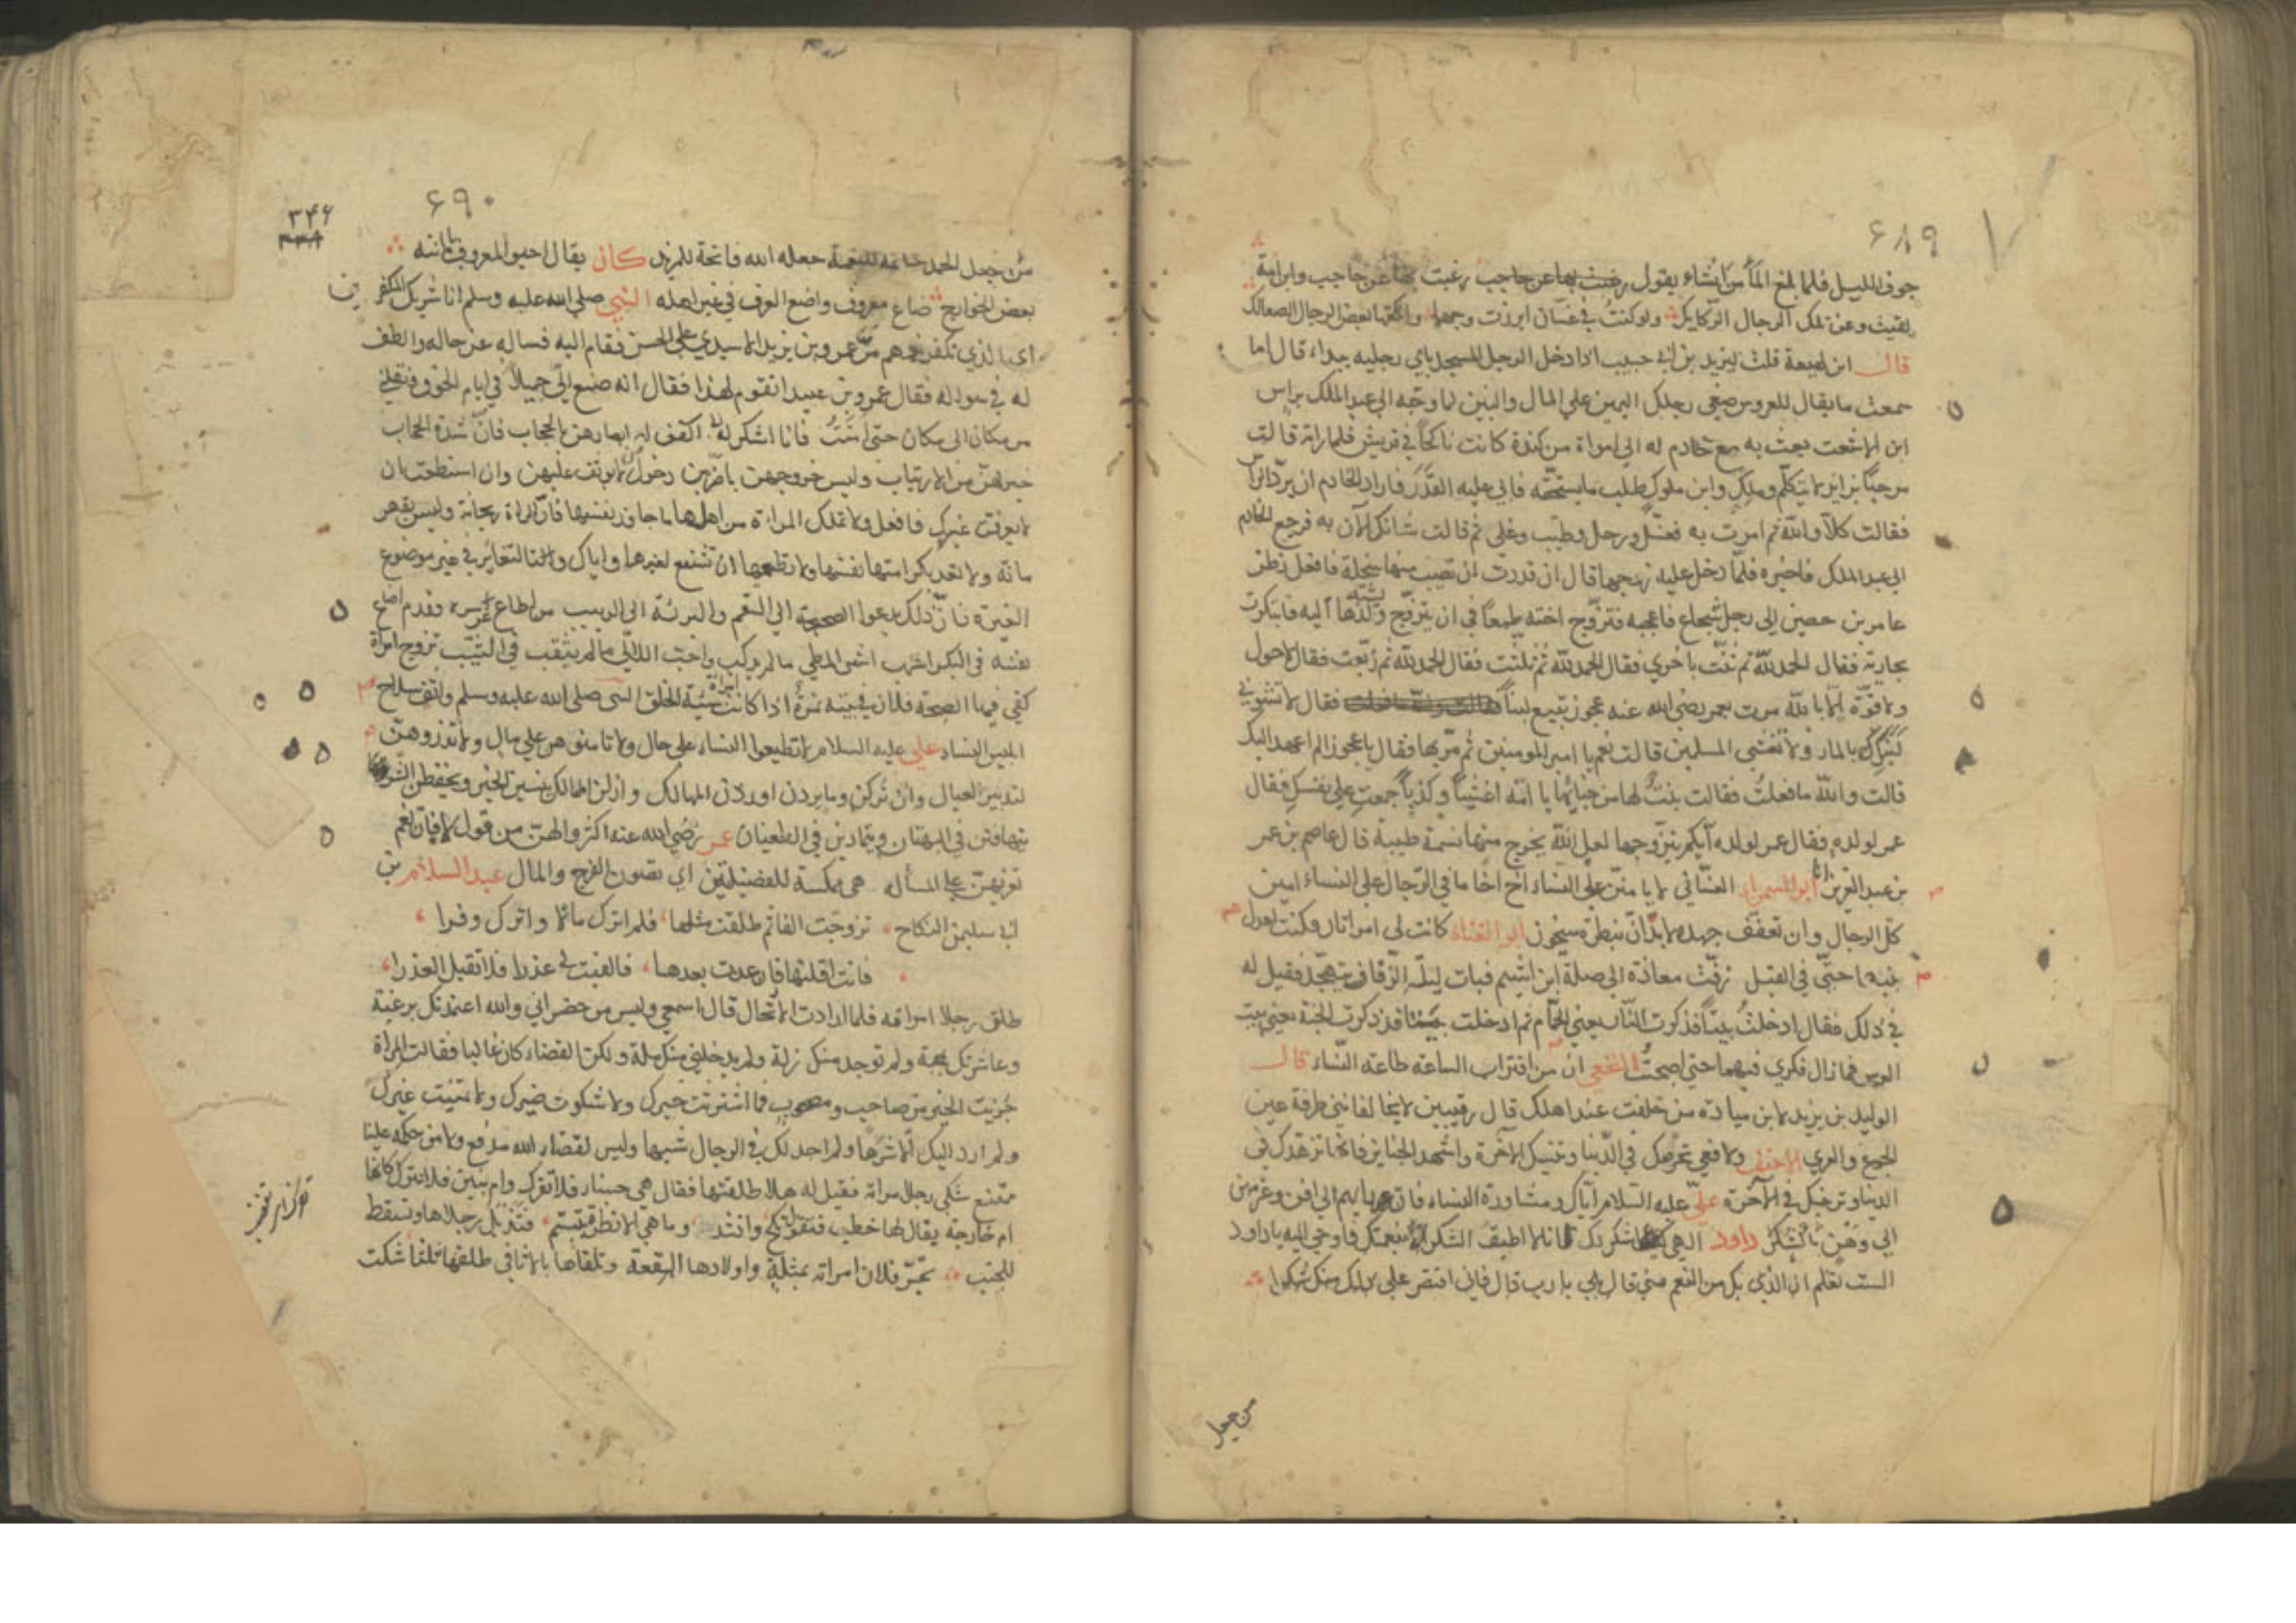 ۶۸۹
جوف الليل فلما بلغ المأمن انشاء يقول رغبت بها عن حاجب رغبت بها عن حاجب وابن امه
لقيت وعن تلك الرجال الركايك ولو كنت في غسان ابرزت وجهها ولكنها بعض الرجال الصعالك
قال ابن لهيعة قلت ليزيد بن ابي حبيب اذا دخل الرجل المسجد باي رجليه يبداء قال اما
سمعت ما يقال للعروس ضعي رجلك اليمين علي المال والبنين لما وجّه الي عبد الملك براس
ابن الاشعث بعث به مع خادم له الي امراة من كندة كانت ناكحاً في قريش فلما راته قالت
مرحبًا بزاير لا يتكلّم وملك وابن ملوك طلب ما يستحقه فابي عليه القدر فاراد الخادم ان يردّ الراس
فقالت كلاّ واللّه ثم امرت به فغسل ورجل وطيّب وغلي ثم قالت شانك الآن به فرجع الخادم
الي عبد الملك فاخبره فلمّا دخل عليه زوجها قال ان قدرت ان تصيب منها سخلة فافعل نظر
عامر بن حصين الي رجل شجاع فاعجبه فتزوّج اخته طمعًا في ان يتزوج ولدها اليه فابتكرت
بجارية فقال الحمد للّه ثم ثنّت باخري فقال الحمد للّه ثم ثلّثت فقال الحمد للّه ثم ربّعت فقال لا حول
ولا قوّة الّا باللّه مرت بعمر رضي الله عنه عجوز تبيع لبناً فقال لا تشوبي
لبنك بالماء ولا تغشي المسلمين قالت نعم يا امير المومنين ثم مرّ بها فقال يا عجوز الم اعهد اليك
قالت واللّه ما فعلتُ فقالت بنت لها من خبائها يا امّه اغشّاً وكذباً جمعتِ علي نفسك فقال
عمر لولده فقال عمر لولده ايكم يتزوجها لعل اللّه يخرج منها نسمة طيبة قال عاصم بن عمر
بن عبد العزيز ابو السمراء الغسّاني لا يامننّ علي النساء اخ اخا ما في الرّجال علي النساء امين
كل الرجال وان تعفّف جهده لا بدّ انّ بنظرة سيخون ابو العيناء كانت لي امراتان وكنت اعدل
بينهما حتّي في القبل زفّت معاذة الي صلة ابن اشيم فبات ليلة الزفاف يتهجّد فقيل له
في ذلك فقال ادخلت بيتاً فذكرت النار يعني الحمّام ثم ادخلت بيتا فذكرت الجنة يعني بيت
العرس فما زال فكري فيهما حتي اصبحت النخعي ان من اقتراب الساعة طاعة النّساء قال
الوليد بن يزيد لابن ميادة من خلفت عند اهلك قال رقيبين لا يخالفانني طرفة عين
الجوع والعري
الدنيا وترغبك في الآخرة عليّ عليه السلام ايّاك ومشاورة النساء فان رايهم الي افن وعزمهن
الي وَهْنٍ داود الهي كيف اشكرك وانا لا اطيق الشكر الا بنعمتك فاوحي اليه يا داود
الست تعلم ان الذي بك من النعم مني قال بلي يا رب قال فاني اقتصر علي ذلك منك شكرا
من جعل
۶۹۰
۳۴۶
من جعل الحمد خاتمة للنعمة جعله الله فاتحة للمزيد كان يقال احيو المعروف باماتته
بعض الخوارج ضاع معروف واضع العرف في غير اهله النبي صلي الله عليه وسلم انا شريك المكفرين
اي الذي تكفر نعمهم مرّ عمرو بن يزيد الاسيدي علي الحسن فقام اليه فساله عن حاله والطف
له في سواله فقال عمرو بن عبيد اتقوم لهذا فقال انه صنع الي جميلا في ايام الخوف نقلني
من مكان الي مكان حتي امنت فانا اشكر له اكفف له ابصارهن بالحجاب فان شدة الحجاب
خير لهن من الارتياب وليس خروجهن باضر من دخول من لا يوثق عليهن وان استطعت ان
لا يعرفن غيرك فافعل ولا تملك المراة من امرها ما جاوز نفسها فان المراة ريحانة وليس بقهر
مانه ولا تعد بكرامتها نفسها ولا تطمعها ان تشفع لغيرها واياك والتغاير في غير موضوع
الغيرة فان ذلك يدعوا الصحيحة الي السقم والبريئة الي الريب من اطاع عرسه فقدم اضاع
نفسه في البكر اشهب اشهي المطي ما لم يركب واحب اللالي ما لم يثقب في الثيب تزوج امراة
كفي فيها الصحة فلان في بيته نمرة اذا كانت سيّئة الخلق النبي صلي الله عليه وسلم واثق سلاح
ابليس النساء علي عليه السلام لا تطيعوا النساء علي حال ولا تامنوهن علي مال ولا تذروهن
لتدبير العيال وان تركن وما يردن اوردن المهالك وازلن الممالك ينسين الخير ويحفظن الشر
يتهافتن في البهتان ويتمادين في الطغيان عمر رضي الله عنه اكثروا لهن من قول لا فان نعم
تغريهن علي المسأله هي مكسة للفضيلتين اي تصون الفرج والمال عبد السلام بن
ابي سليمن النكاح تزوجت الفا ثم طلقت مثلها فلم اترك مالا واترك وفرا
فانت اقلتها فارعدت بعدها فالفيت لي عذرا فلا تقبل العذرا
طلق رجلا امراته فلما ارادت الارتحال قال اسمعي وليس من حضر اني والله اعتمدتك برغبة
وعاشرتك بمحبة ولم توجد منك زلة ولم يدخلني منك ملة ولكن القضاء كان غالبا فقالت المراة
جُزيت الخير من صاحب ومصحوب فما استرثت خيرك ولا شكوت ضيرك ولا تمنيت غيرك
ولم ارد اليك الا شرها ولم اجد لك في الرجال شبيها وليس لقضاء الله مدفع ولا من حكمه علينا
ممتنع شكي رجلا مراته فقيل له هلا طلقتها فقال هي حسناء فلا تفرك وام بنين فلا تترك كانها
ام خارجة يقال لها خطب فتقول نكح وانشد وما هي الا نظرة بتبسم فتنزل رجلاها وتسقط
للجنب تجبّر فلان امراته بمثلثه واولادها البقعة وتلقاها بالاثافي طلقها ثلثا شكت